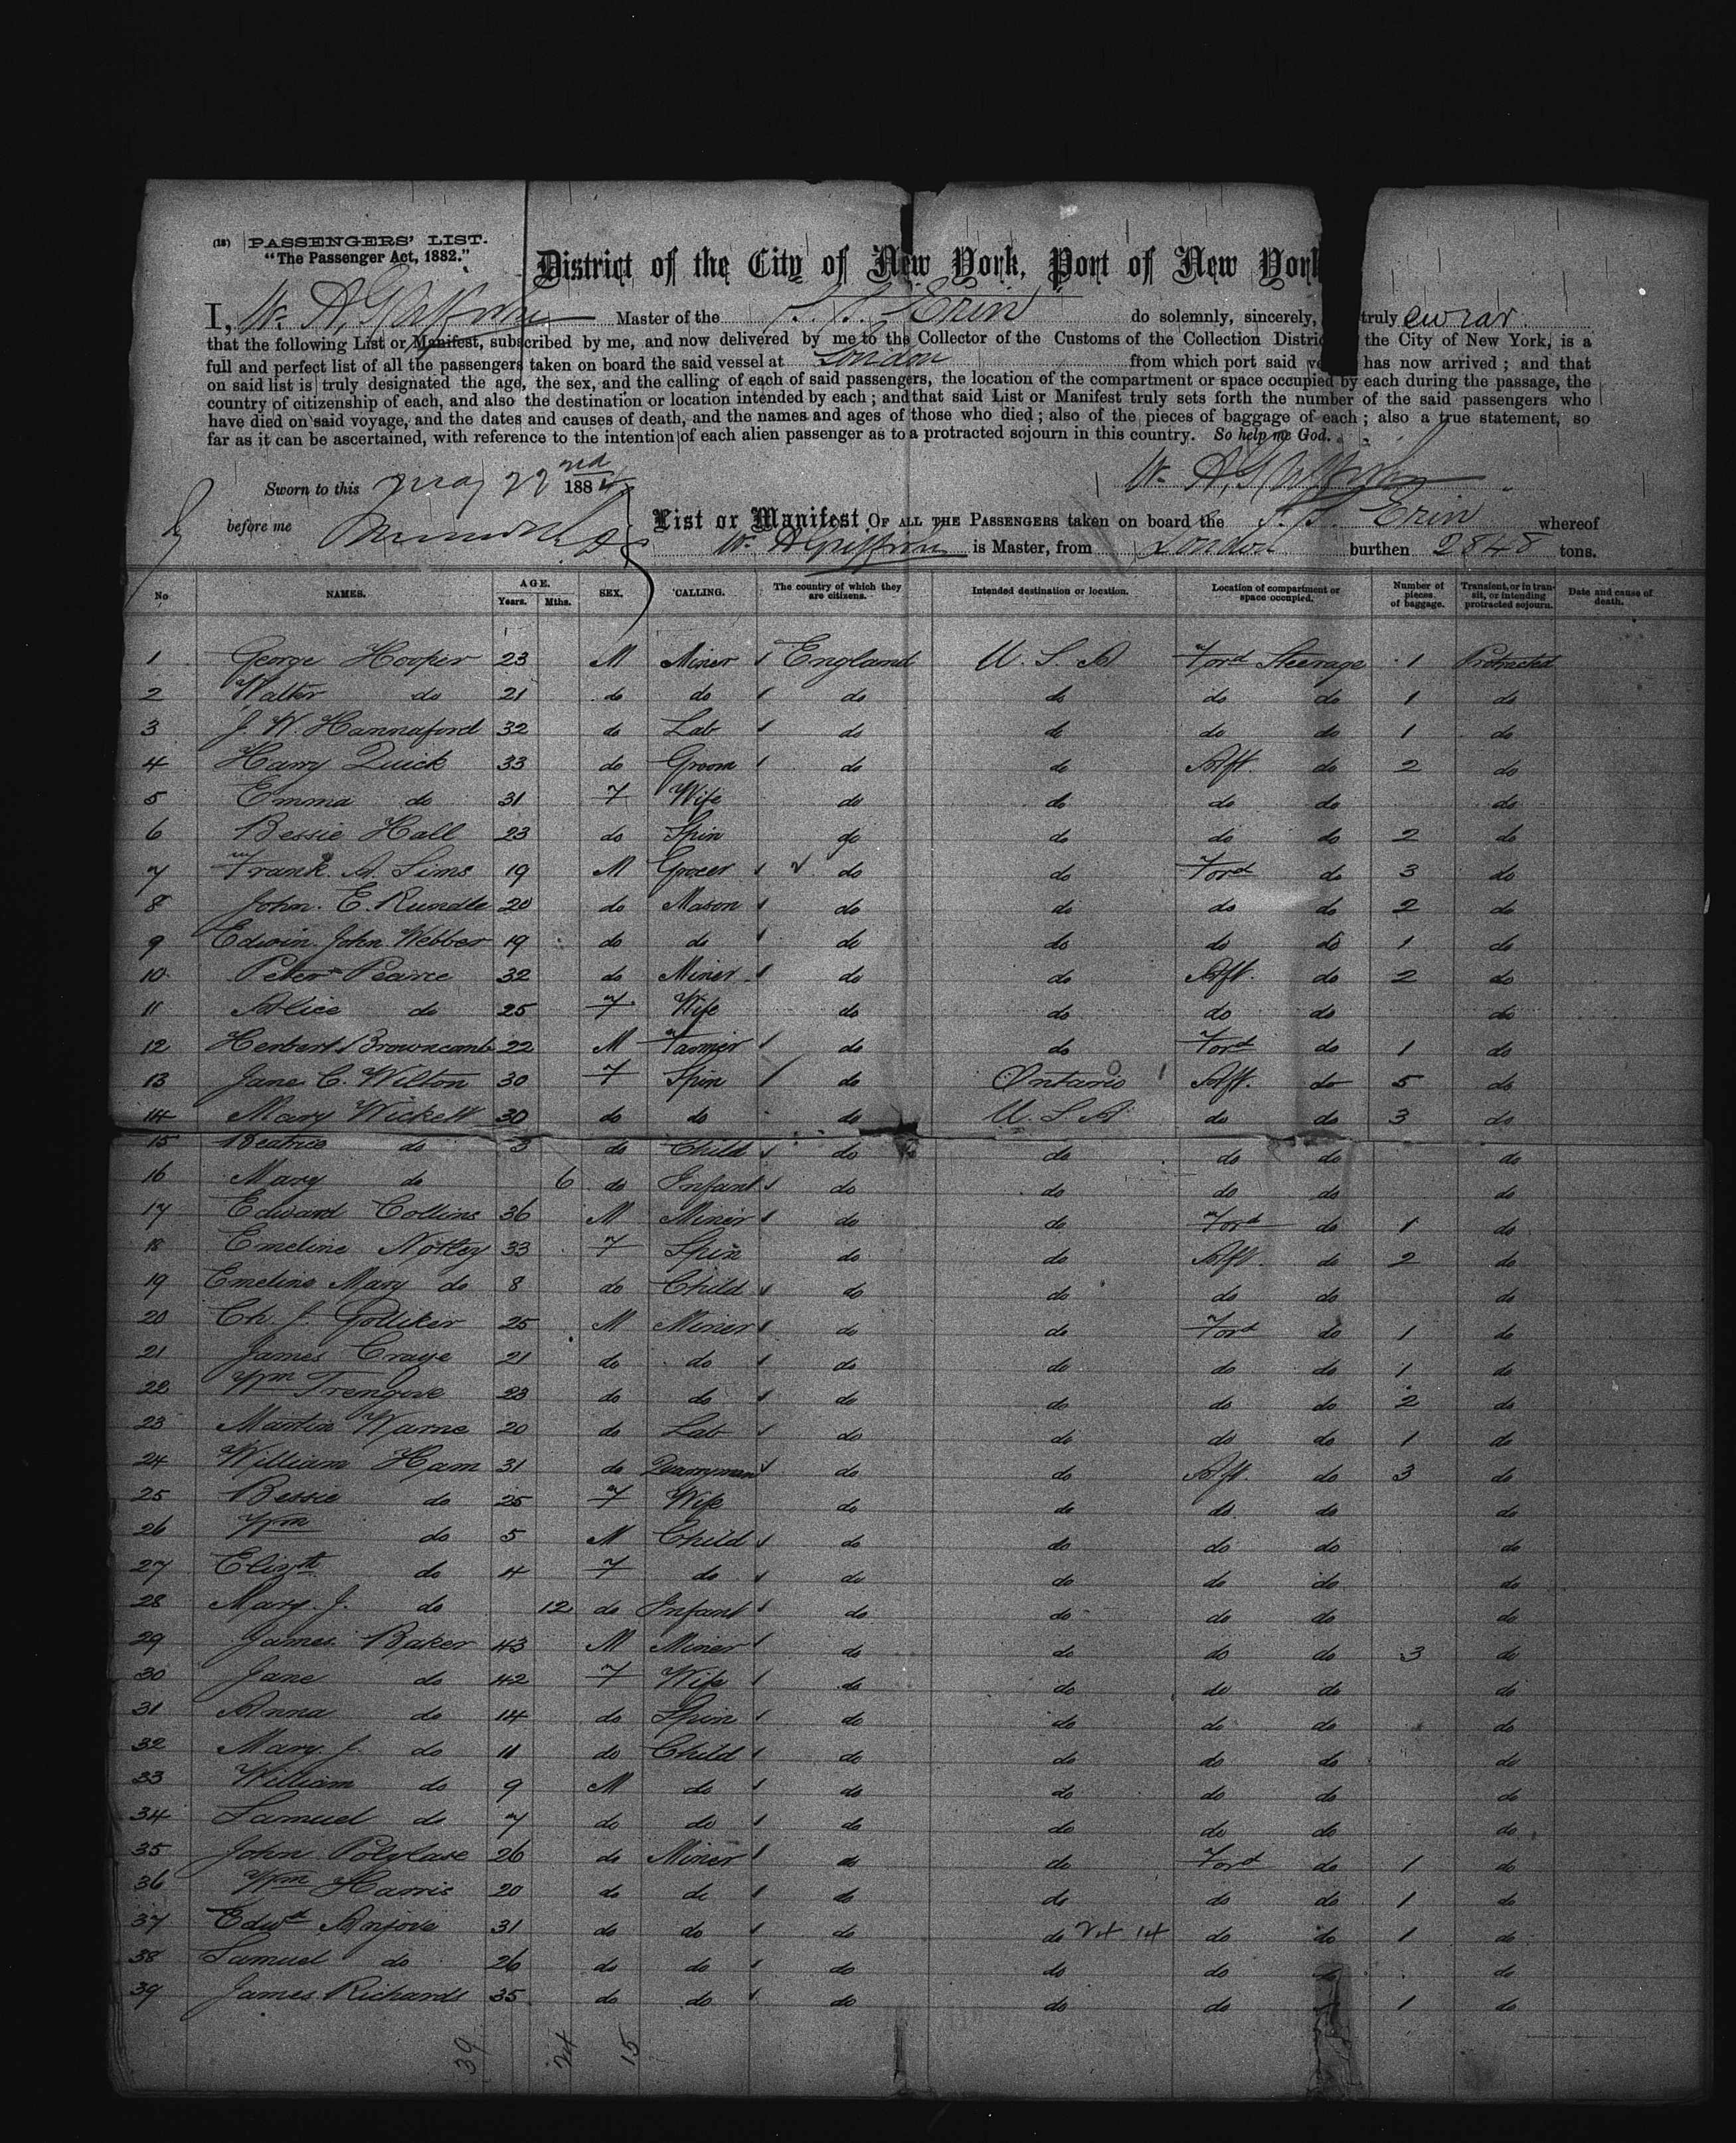 (18) PASSENGERS' LIST.
"The Passenger Act, 1882."
District of the City of New York, Port of New York
I, W. A. Master of the S.S. Erin do solemnly, sincerely, truly swear
that the following List or Manifest, subscribed by me, and now delivered by me to the Collector of the Customs of the Collection Distric the City of New York, is a
full and perfect list of all the passengers taken on board the said vessel at London from which port said ve has now arrived; and that
on said list is truly designated the age, the sex, and the calling of each of said passengers, the location of the compartment or space occupied by each during the passage, the
country of citizenship of each, and also the destination or location intended by each; and that said List or Manifest truly sets forth the number of the said passengers who
have died on said voyage, and the dates and causes of death, and the names and ages of those who died; also of the pieces of baggage of each; also a true statement, so
far as it can be ascertained, with reference to the intention of each alien passenger as to a protracted sojourn in this country. So help me God.
W. A.
Sworn to this May 22nd 188
before me
List or Manifest OF ALL THE PASSENGERS taken on board the S.S. Erin whereof
W. A. is Master, from London burthen 2848 tons.
No NAMES. AGE. Years. Mths. SEX. CALLING. The country of which they are citizens. Intended destination or location. Location of compartment or space occupied. Number of pieces of baggage. Transient, or in transit, or intending protracted sojourn. Date and cause of death.
1 George Hooper 23 M Miner England U.S.A Ford Steerage 1 Protracted
2 Walter do 21 do do do do do do 1 do
3 J. W. Hannaford 32 do Lab do do do do 1 do
4 Harry Quick 33 do Groom do do Aft. do 2 do
5 Emma do 31 F Wife do do do do do
6 Bessie Hall 23 do Spin do do do do 2 do
7 Frank A. Sims 19 M Grocer do do Ford do 3 do
8 John. E. Rundle 20 do Mason do do do do 2 do
9 Edwin John Webber 19 do do do do do do 1 do
10 Peter Pearce 32 do Miner do do Aft. do 2 do
11 Alice do 25 F Wife do do do do do
12 Herbert Browncomb 22 M Farmer do do Ford do 1 do
13 Jane C. Wilton 30 F Spin do Ontario Aft. do 5 do
14 Mary Wickett 30 do do do U.S.A do do 3 do
15 Beatrice do 3 do Child do do do do do
16 Mary do 6 do Infant do do do do do
17 Edward Collins 36 M Miner do do Ford do 1 do
18 Emeline Notley 33 F Spin do do Aft. do 2 do
19 Emeline Mary do 8 do Child do do do do do
20 Ch. J. Golliker 25 M Miner do do Ford do 1 do
21 James Craye 21 do do do do do do 1 do
22 Wm Trengove 23 do do do do do do 2 do
23 Martin Warne 20 do Lab do do do do 1 do
24 William Ham 31 do Quarryman do do Aft. do 3 do
25 Bessie do 25 F Wife do do do do do
26 Wm do 5 M Child do do do do do
27 Elizth do 4 F do do do do do do
28 Mary. J. do 12 do Infant do do do do do
29 James Baker 43 M Miner do do do do 3 do
30 Jane do 42 F Wife do do do do do
31 Anna do 14 do Spin do do do do do
32 Mary. J. do 11 do Child do do do do do
33 William do 9 M do do do do do do
34 Samuel do 7 do do do do do do do
35 John Polglase 26 do Miner do do Ford do 1 do
36 Wm Harris 20 do do do do do do 1 do
37 Edwd Anjove 31 do do do do 24 14 do do 1 do
38 Samuel do 26 do do do do do do do
39 James Richards 35 do do do do do 1 do
39 24 15